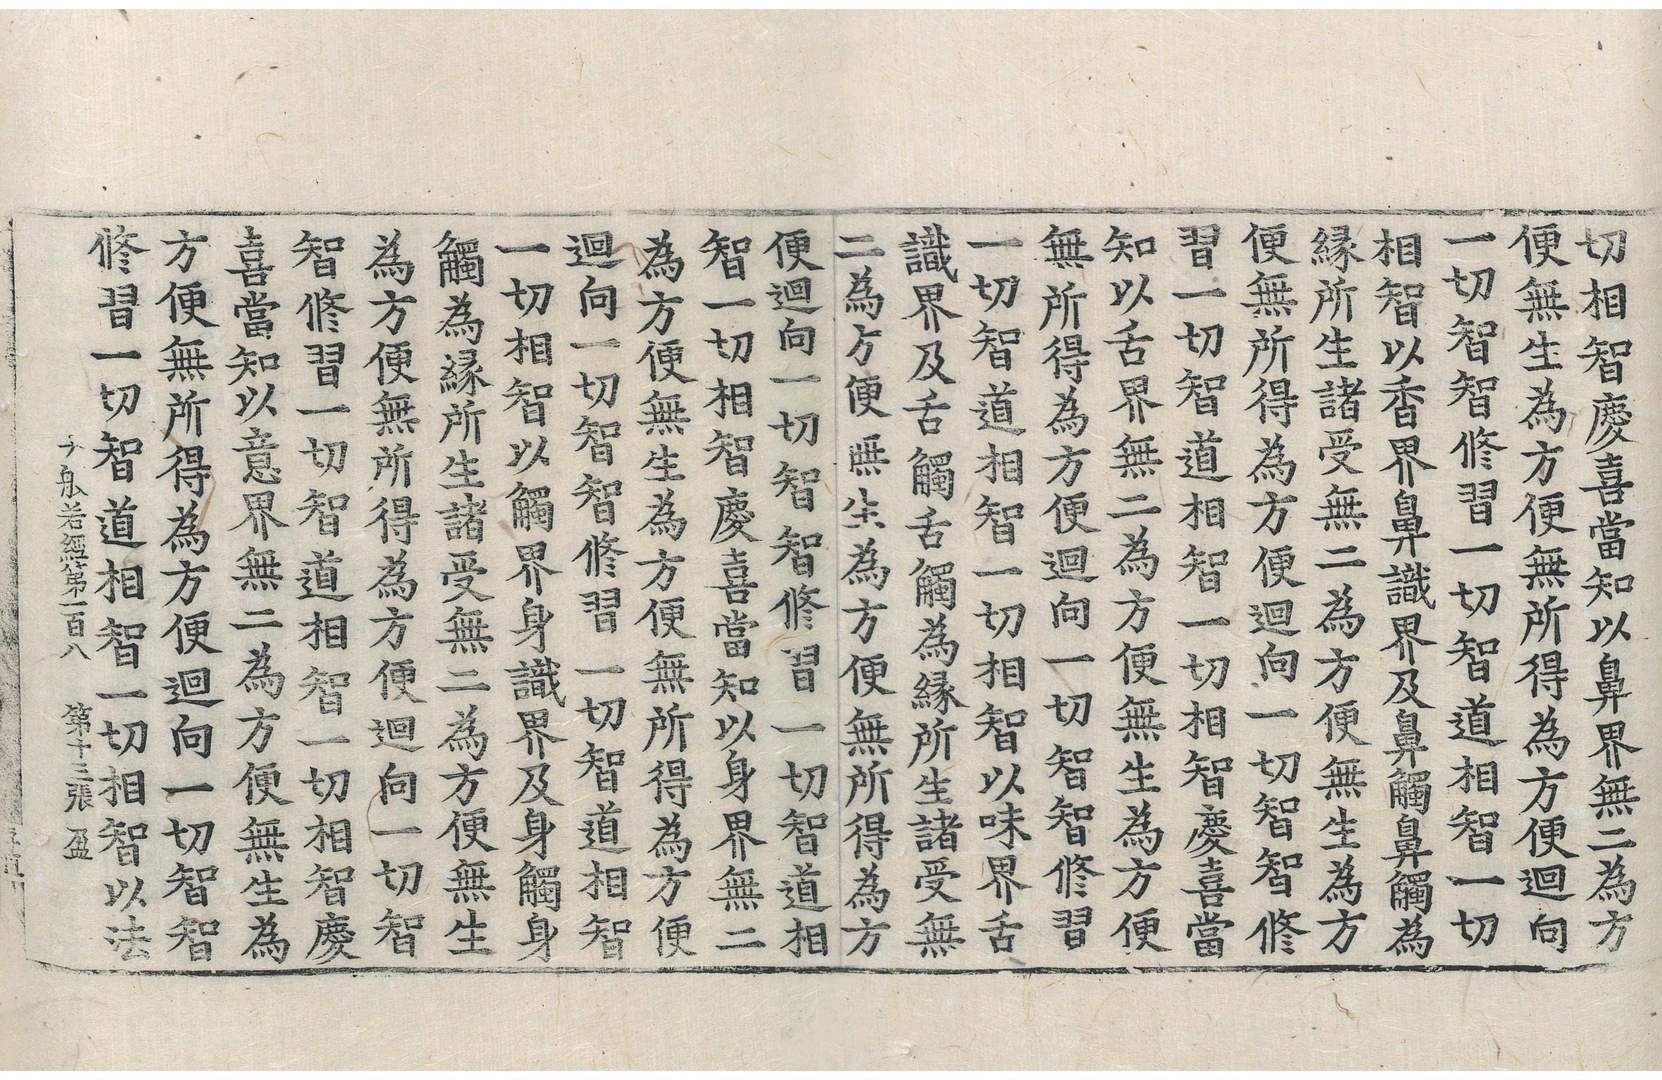 切相智慶喜當知以鼻界無二為方
便無生為方便無所得為方便迴向
一切智智修習一切智道相智一切
相智以香界鼻識界及鼻觸鼻觸為
縁所生諸受無二為方便無生為方
便無所得為方便迴向一切智智修
習一切智道相智一切相智慶喜當
知以舌界無二為方便無生為方便
無所得為方便迴向一切智智修習
一切智道相智一切相智以味界舌
識界及舌觸舌觸為縁所生諸受無
二為方便無生為方便無所得為方
便迴向一切智智修習一切智道相
智一切相智慶喜當知以身界無二
為方便無生為方便無所得為方便
迴向一切智智修習一切智道相智
一切相智以觸界身識界及身觸身
觸為縁所生諸受無二為方便無生
為方便無所得為方便迴向一切智
智修習一切智道相智一切相智慶
喜當知以意界無二為方便無生為
方便無所得為方便迴向一切智智
修習一切智道相智一切相智以法
般若經第一百八 第十三張 盈